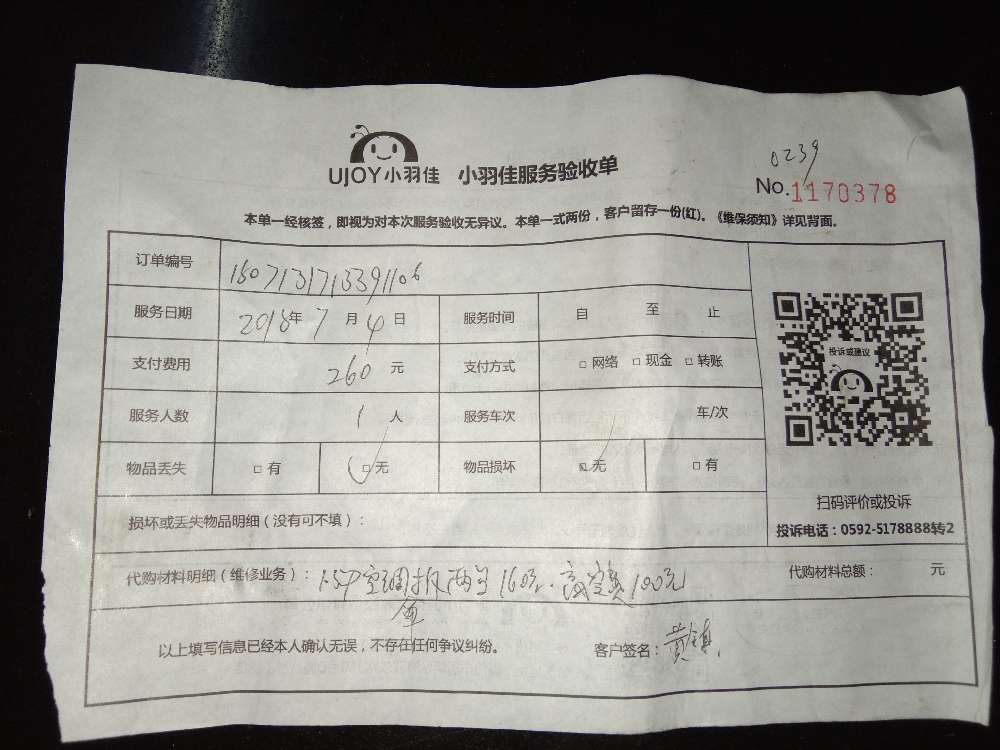 0239
UJOY小羽佳 小羽佳服务验收单 No.1170378
本单一经核签，即视为对本次服务验收无异议。本单一式两份，客户留存一份(红)。《维保须知》详见背面。
订单编号 1807131713391106
服务日期 2018年7月4日 服务时间 自 至 止
支付费用 260元 支付方式 □网络 □现金 □转账
服务人数 1人 服务车次 车/次
物品丢失 □有 □无 物品损坏 □无 □有
投诉或建议
扫码评价或投诉
投诉电话：0592-5178888转2
损坏或丢失物品明细（没有可不填）：
代购材料明细（维修业务）：1.5P空调拆两台160元. 高空费100元 代购材料总额： 元
以上填写信息已经本人确认无误，不存在任何争议纠纷。 客户签名：黄